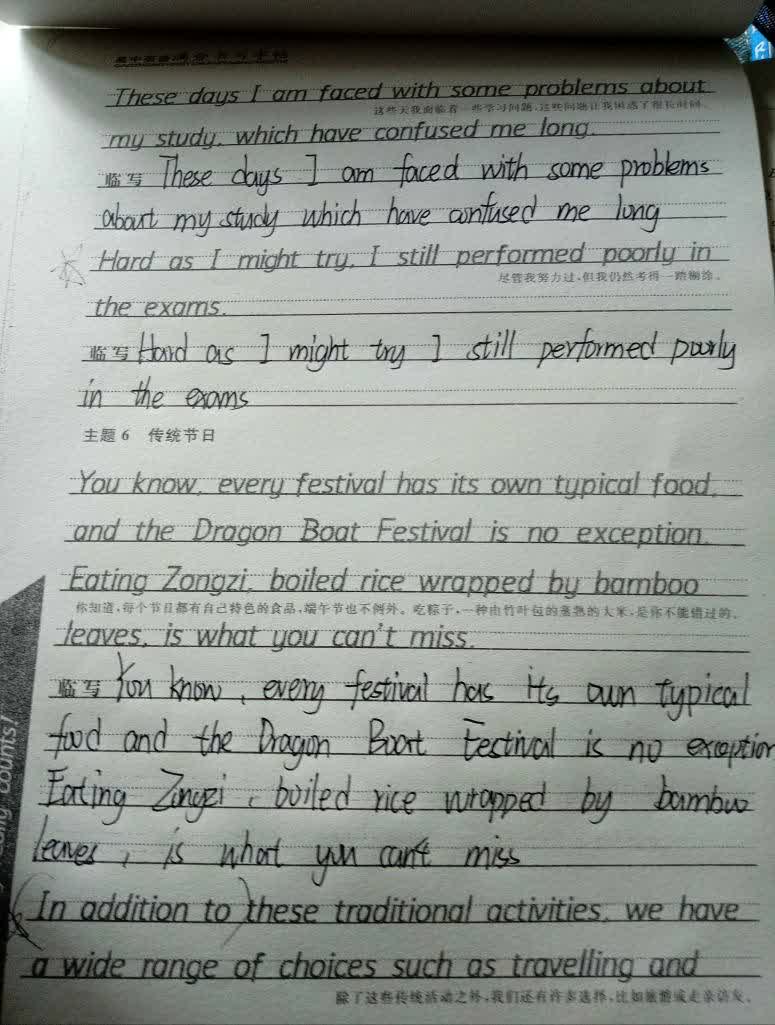 高中英语满分书写字帖
These days I am faced with some problems about
这些天我面临着一些学习问题,这些问题让我困惑了很长时间。
my study, which have confused me long.
临写 These days I am faced with some problems
about my study which have confused me long
Hard as I might try, I still performed poorly in
尽管我努力过,但我仍然考得一塌糊涂。
the exams.
临写 Hard as I might try I still performed poorly
in the exams
主题6 传统节日
You know, every festival has its own typical food,
and the Dragon Boat Festival is no exception.
Eating Zongzi, boiled rice wrapped by bamboo
你知道,每个节日都有自己特色的食品,端午节也不例外。吃粽子,一种由竹叶包的蒸熟的大米,是你不能错过的。
leaves, is what you can't miss.
临写 You know, every festival has its own typical
food and the Dragon Boat Festival is no exception
Eating Zingzi, boiled rice wrapped by bamboo
leaves, is what you can't miss
In addition to these traditional activities, we have
a wide range of choices such as travelling and
除了这些传统活动之外,我们还有许多选择,比如旅游或走亲访友。
counts!